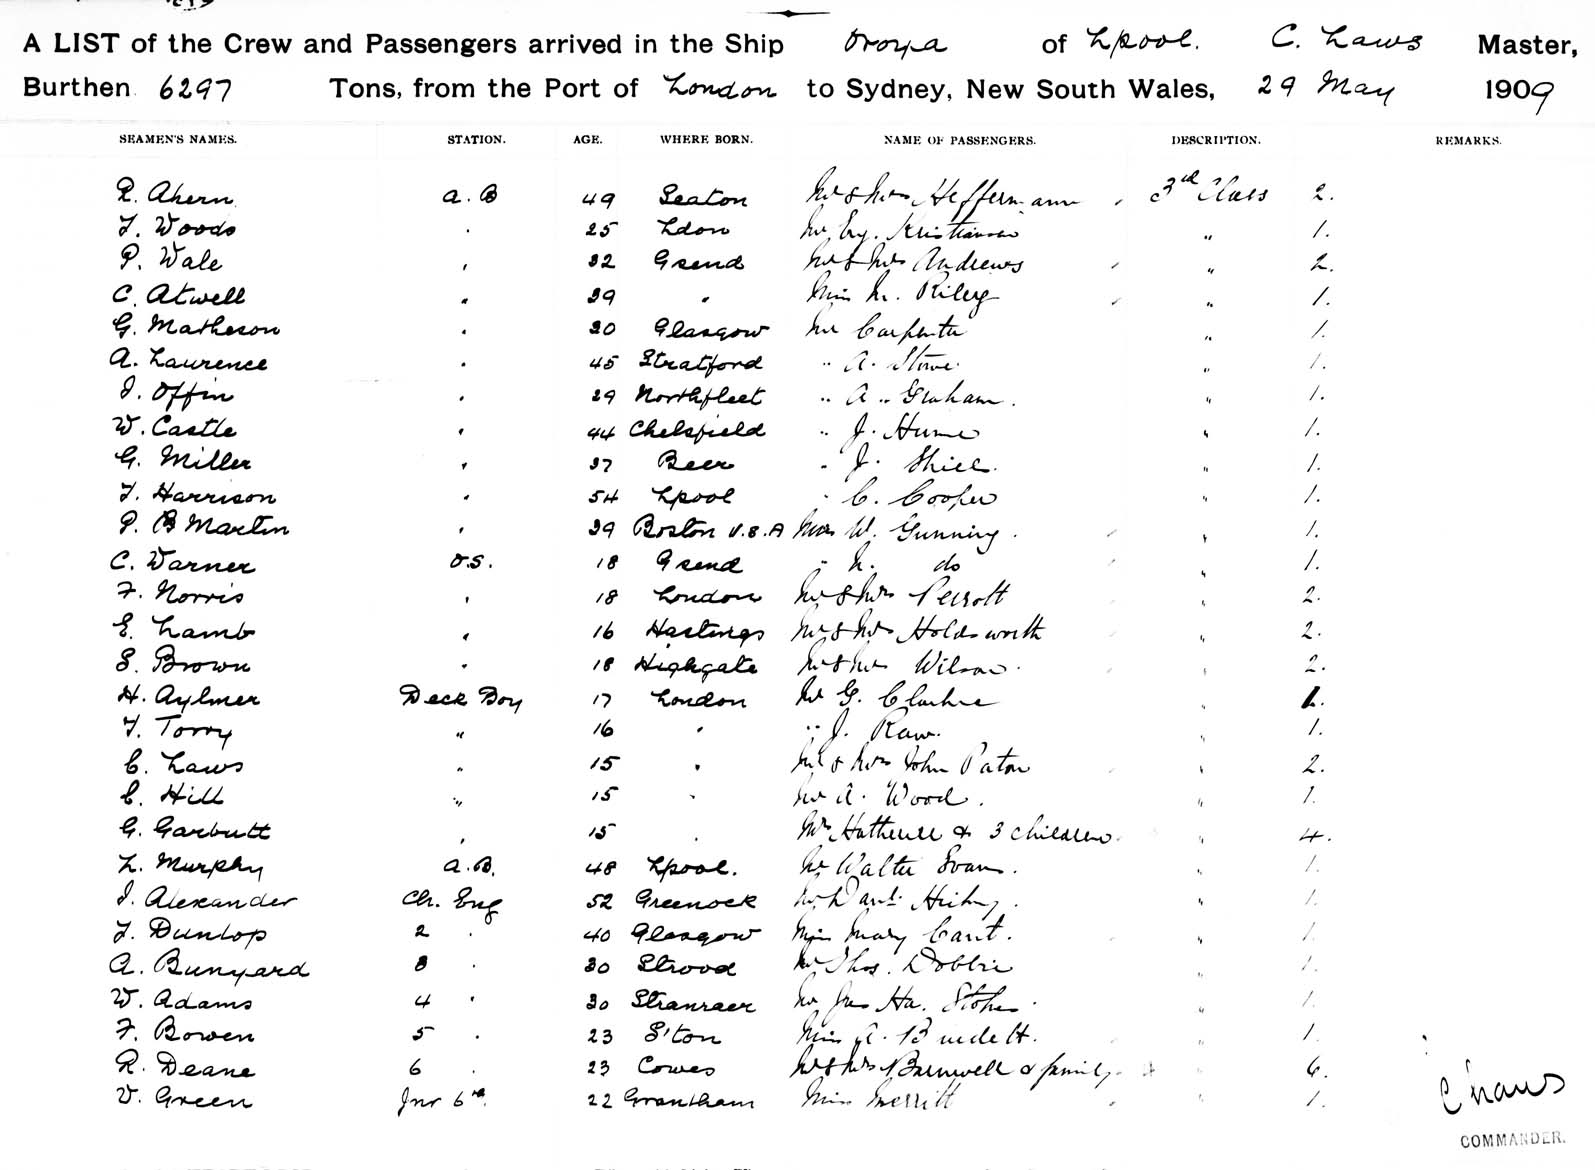 A LIST of the Crew and Passengers arrived in the Ship Oroya of Lpool. C. Laws Master,
Burthen 6297 Tons, from the Port of London to Sydney, New South Wales, 29 May 1909
SEAMEN'S NAMES. STATION. AGE. WHERE BORN. NAME OF PASSENGERS. DESCRIPTION. REMARKS.
R. Ahern a.B 49 Seaton Mr & Mrs Heffermann 3rd Class 2.
F. Woods . 25 Ldon Mr Kristiansen " 1.
P. Wale , 32 Gsend Mr & Mrs Andrews " 2.
C. Atwell " 39 " Miss M. Riley " 1.
G. Matheson . 30 Glasgow Mr Carpenter " 1.
A. Laurence . 45 Stratford " A. Stowe " 1.
J. Offin . 29 Northfleet " A. Graham. " 1.
W. Castle . 44 Chelsfield " J. Hume " 1.
G. Miller , 37 Beer " J. Shiel. " 1.
F. Harrison . 54 Lpool " C. Cooper " 1.
P. B Martin , 39 Boston U.S.A Mrs W. Gunning. " 1.
C. Warner O.S. 18 Gsend " M. do " 1.
F. Norris , 18 London Mr & Mrs Perrott " 2.
E. Lamb " 16 Hastings Mr & Mrs Holdsworth " 2.
S. Brown . 18 Highgate Mr & Mrs Wilson. " 2.
H. Aylmer Deck Boy 17 London Mr G. Clarke " 1.
F. Torry " 16 " " J. Raw. " 1.
C. Laws " 15 " Mr & Mrs John Paton " 2.
C. Hill " 15 " Mr A. Wood. " 1.
G. Garbutt , 15 . Mrs Hatherell & 3 children. " 4.
L. Murphy a.B. 48 Lpool. Mr Walter Evans. " 1.
J. Alexander Ch. Eng 52 Greenock Mr Danl. Hickey. " 1.
F. Dunlop 2 . 40 Glasgow Miss Mary Cant. " 1.
A. Bunyard 3 . 30 Strood Mr Thos. Dobbie " 1.
W. Adams 4 . 30 Stranraer Mr Jas Stokes. " 1.
F. Bowen 5 . 23 S'ton Miss A. " 1.
R. Deane 6 . 23 Cowes Mr & Mrs Barnwell & family. " 6.
V. Green Jnr 6th. 22 Grantham Miss Merritt " 1.
C Laws
COMMANDER.